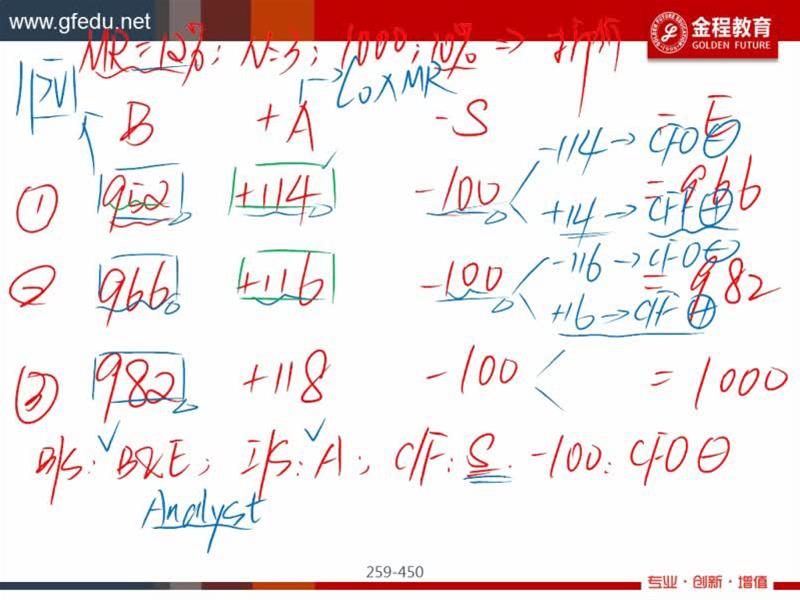 www.gfedu.net
金程教育
GOLDEN FUTURE
MR=12%; N=3; 1000; 10% ⇒ 折价
B +A -S E
L0×MR
① 952 +114 -100 = 966
-114→CFO⊖
+14→CFF⊕
② 966 +116 -100 = 982
-116→CFO⊖
+16→CFF⊕
③ 982 +118 -100 = 1000
B/S: B&E; I/S: A; C/F: S. -100: CFO⊖
Analyst
259-450
专业·创新·增值